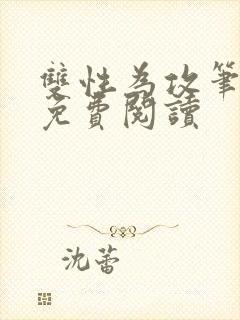 雙性為攻筆
免費閱讀
沈蕾